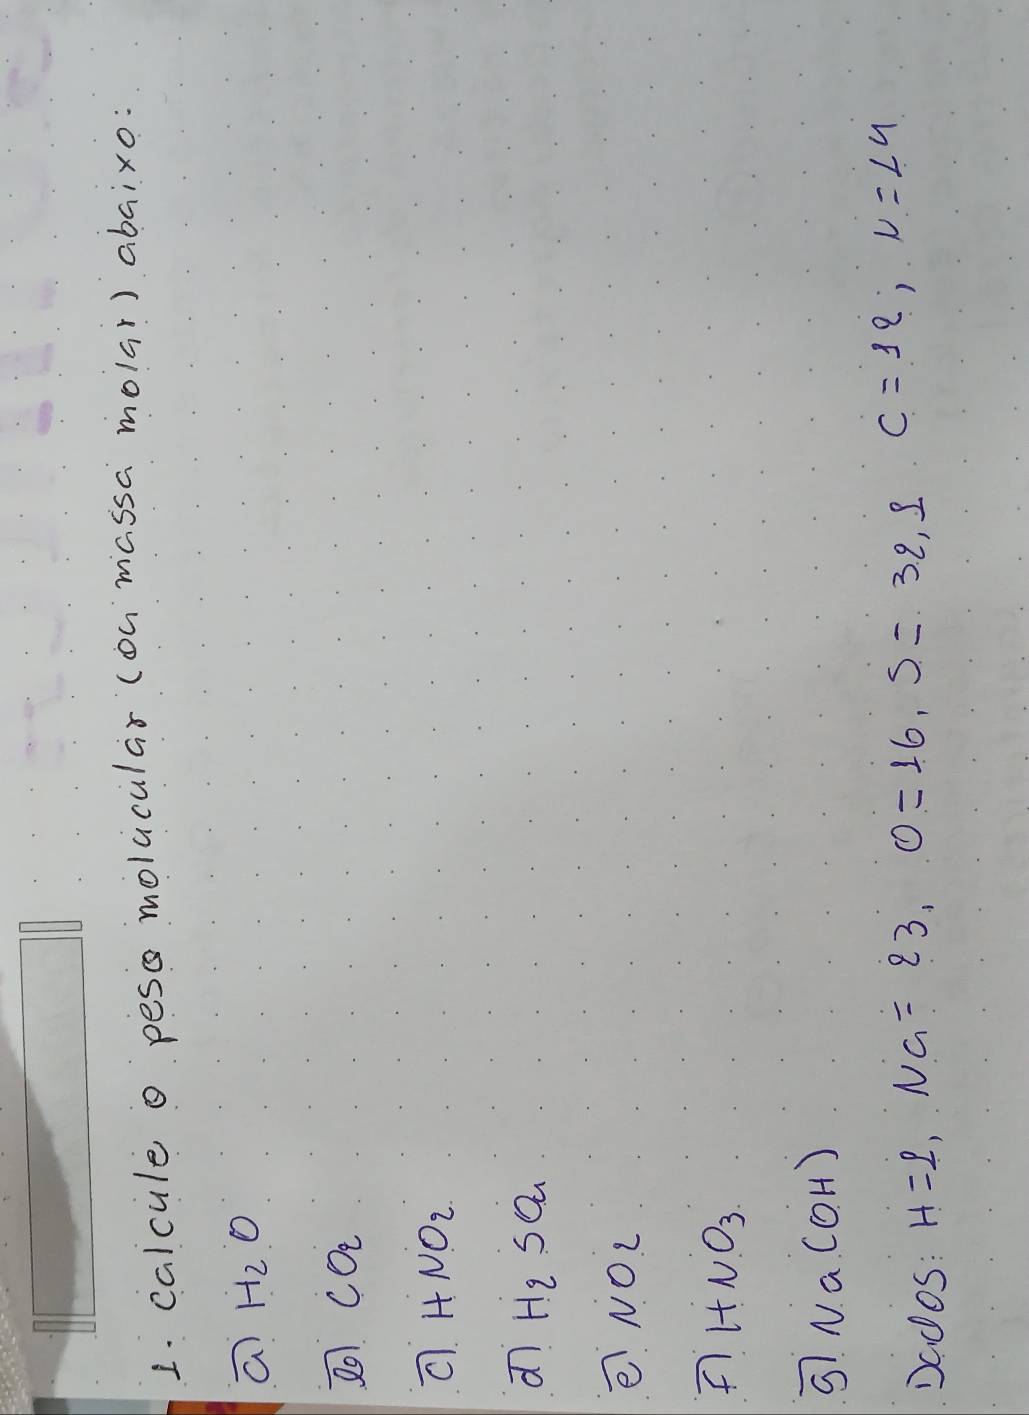 1. calcule o peso molacular (ou massa molar) abaixo:
a) H₂O
b) CO₂
c) HNO₂
d) H₂SO₄
e) NO₂
f) HNO₃
g) Na(OH)
Dados: H=1, Na=23, O=16, S=32,1 C=12; N=14